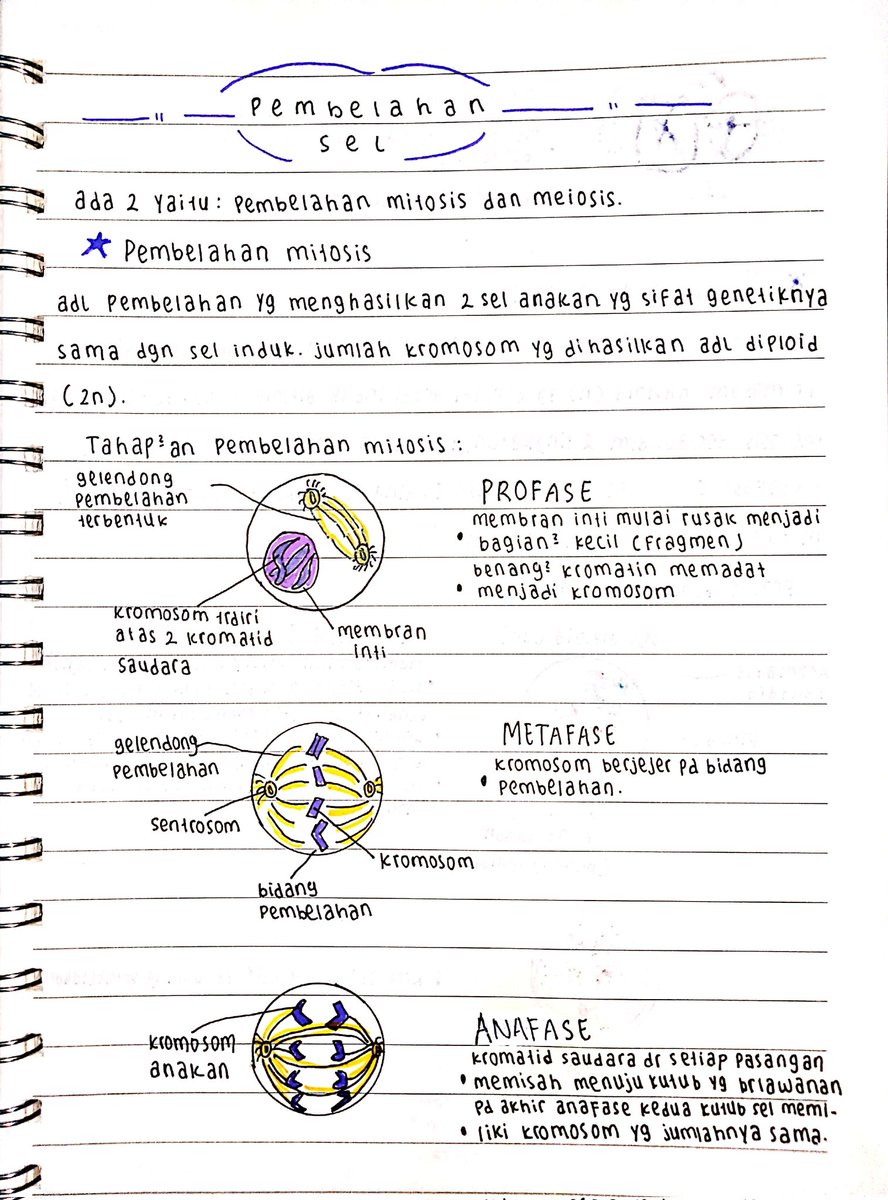 Pembelahan
sel
ada 2 yaitu: pembelahan mitosis dan meiosis.
★ Pembelahan mitosis
adl pembelahan yg menghasilkan 2 sel anakan yg sifat genetiknya
sama dgn sel induk. jumlah kromosom yg dihasilkan adl diploid
(2n).
Tahap²an pembelahan mitosis :
gelendong
pembelahan
terbentuk
kromosom trdiri
atas 2 kromatid
saudara
membran
inti
PROFASE
membran inti mulai rusak menjadi
• bagian² kecil (fragmen)
benang² kromatin memadat
• menjadi kromosom
gelendong
pembelahan
sentrosom
bidang
pembelahan
kromosom
METAFASE
kromosom berjejer pd bidang
• pembelahan.
kromosom
anakan
ANAFASE
kromatid saudara dr setiap pasangan
• memisah menuju kutub yg brlawanan
pd akhir anafase kedua kutub sel memi-
• liki kromosom yg jumlahnya sama.